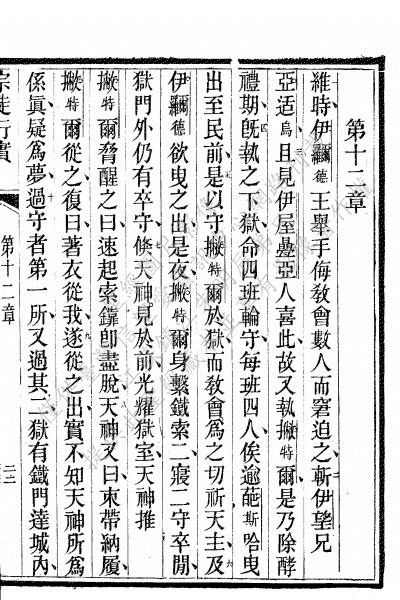 第十二章
維時伊羅德王舉手侮敎會數人而窘迫之斬伊望兄
亞适烏且見伊屋疊亞人喜此故又執撇特爾是乃除酵
禮期旣執之下獄命四班輪守每班四人俟逾葩斯哈曳
出至民前是以守撇特爾於獄而敎會爲之切祈天主及
伊羅德欲曳之出是夜撇特爾身繫鐵索二寢二守卒閒
獄門外仍有卒守倐天神見於前光耀獄室天神推
撇特爾脅醒之曰速起索鏲卽盡脫天神又曰束帶納履
撇特爾從之復曰著衣從我遂從之出實不知天神所爲
係眞疑爲夢過守者第一所又過其二獄有鐵門達城內
宗徒行實
第十二章